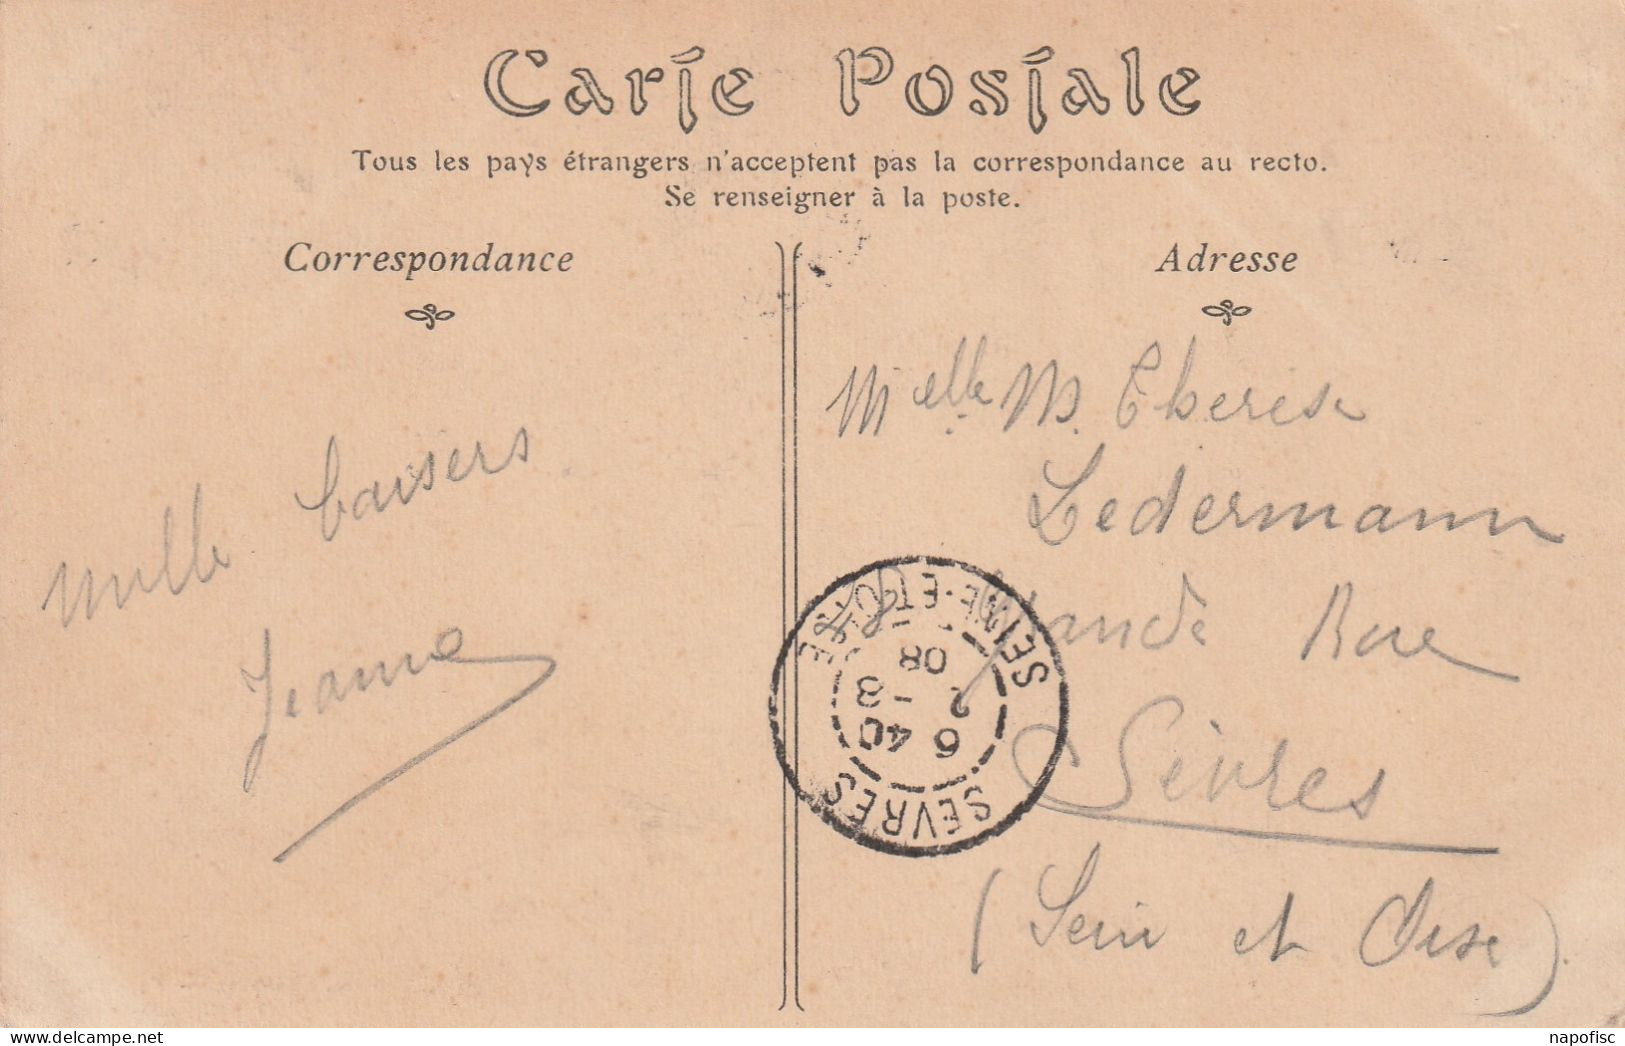 Carte Postale
Tous les pays étrangers n'acceptent pas la correspondance au recto.
Se renseigner à la poste.
Correspondance
Adresse
Mille baisers
Jeanne
Melle M. Therese
Ledermann
Grande Rue
Sèvres
(Seine et Oise).
SEVRES
6 40
2 -3
08
SEINE-ET-OISE
www.delcampe.net
napofisc